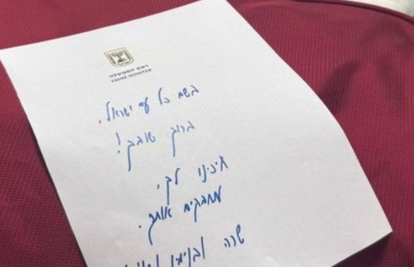 ראש הממשלה
בשם כל עם ישראל,
ברוך שובך!
חיכינו לך,
מחבקים אותך.
שרה ובנימין